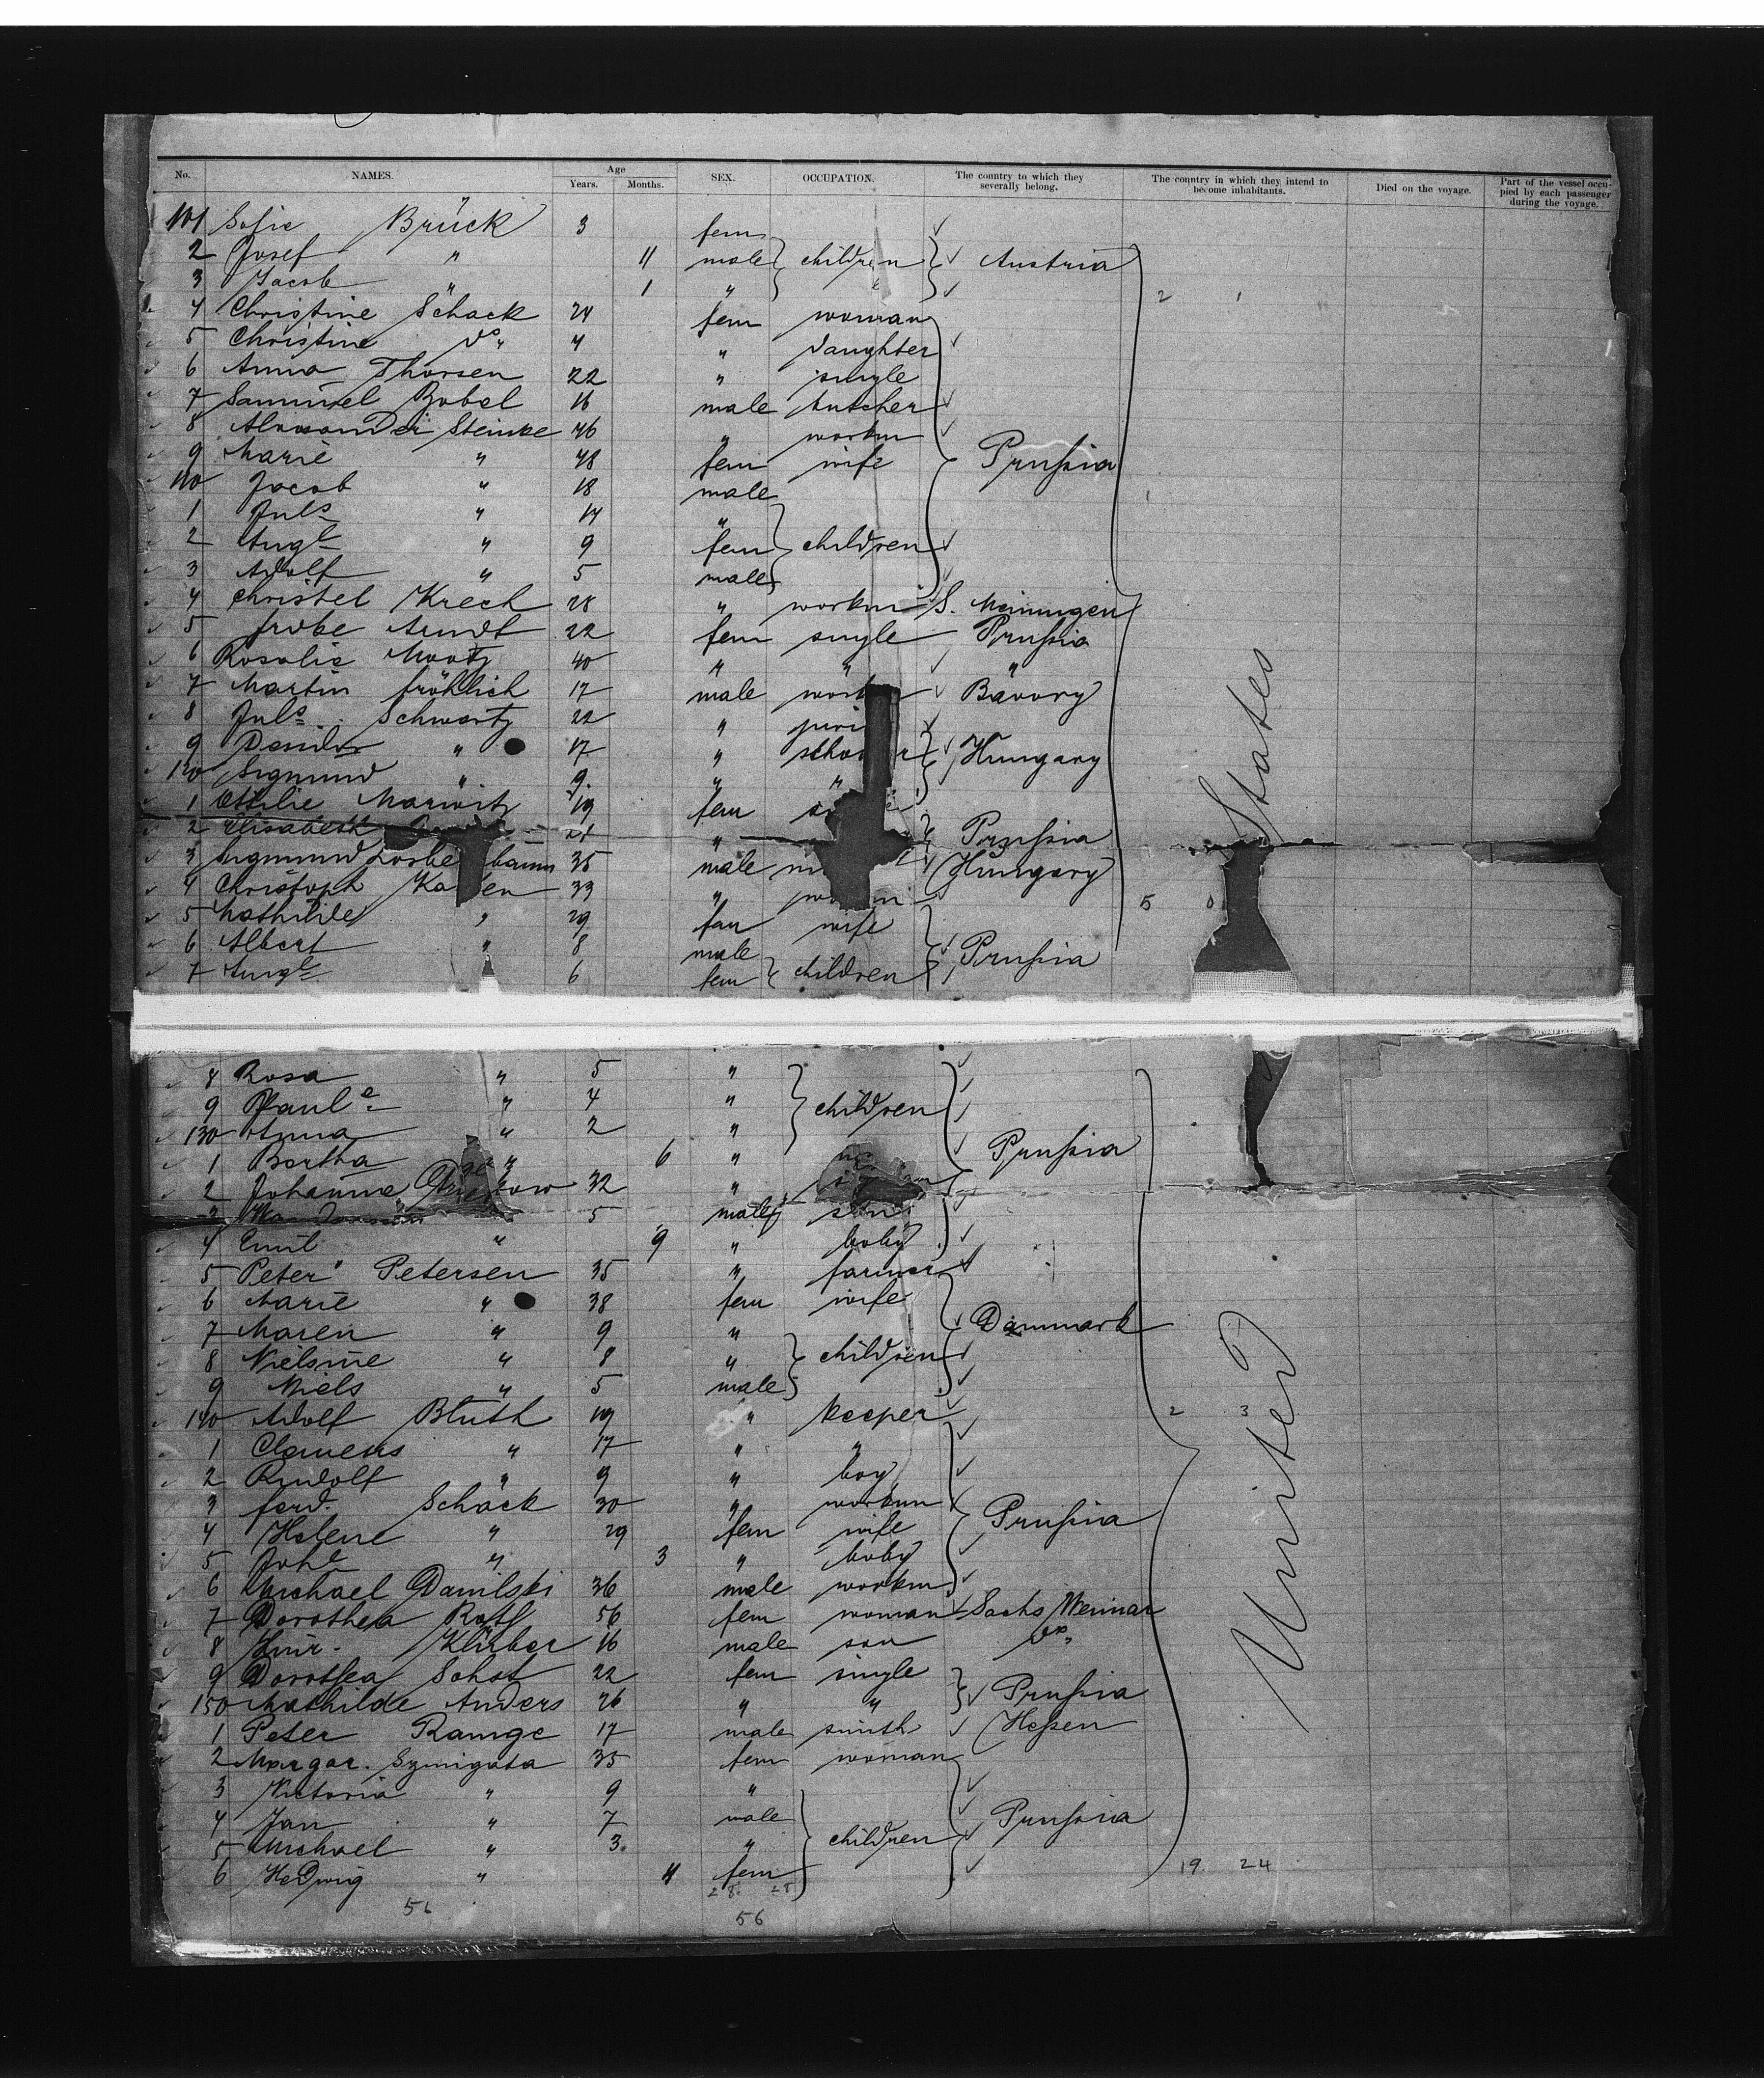 No. NAMES. Age Years. Months. SEX. OCCUPATION. The country to which they severally belong. The country in which they intend to become inhabitants. Died on the voyage. Part of the vessel occupied by each passenger during the voyage.
101 Sofie Brück 3 fem
2 Josef " 11 male children Austria
3 Jacob " 1 "
4 Christine Schack 24 fem woman
5 Christine do 4 " daughter
6 Anna Thorsen 22 " single
7 Samuel Bobel 16 male butcher
8 Alexander Steinke 46 " workm
9 Marie " 48 fem wife Prussia
110 Jacob " 18 male
1 Juls " 14 "
2 Auge " 9 fem children
3 Adolf " 5 male
4 Christel Krech 28 " workm S. Meiningen
5 Arndt 22 fem single Prussia
6 Rosalie 40 " " "
7 Martin Fröhlich 17 male Bavory
8 Juls Schwartz 22 "
9 " 17 " Hungary
120 Sigmund " 9 " "
1 Ottilie Marwitz 19 fem
2 Elisabeth " Prussia
3 Sigmund baum 35 male Hungary
4 Christoph 33 "
5 Mathilde " 29 fem wife
6 Albert " 8 male Prussia
7 Auge 6 fem children
8 Rosa " 5 "
9 Paule " 4 " children
130 Anna " 2 "
1 Bertha " 6 " Prussia
2 Johanna 32 "
3 5 male son
4 Emil " 9 " baby
5 Peter Petersen 35 " farmer
6 Marie " 38 fem wife
7 Maren " 9 " Danmark
8 Nielsine " 8 " children
9 Niels " 5 male
140 Adolf Bluth 19 " keeper
1 Clemens " 17 " "
2 Rudolf " 9 " boy
3 Ferd. Schack 30 " workm
4 Helene " 29 fem wife Prussia
5 Johe " 3 " baby
6 Michael Danilski 36 male workm
7 Dorothea Roth 56 fem woman Sachs Weimar
8 Klüber 16 male son do
9 Dorothea Schot 22 fem single
150 Mathilde Anders 26 " " Prussia
1 Peter Ramge 17 male smith Hessen
2 Margar. Szmigata 35 fem woman
3 Victoria " 9 "
4 Jan " 7 male Prussia
5 Michael " 3 " children
6 Hedwig " 11 fem
28 28
56 56
2 1
5 0
2 3
19 24
United States